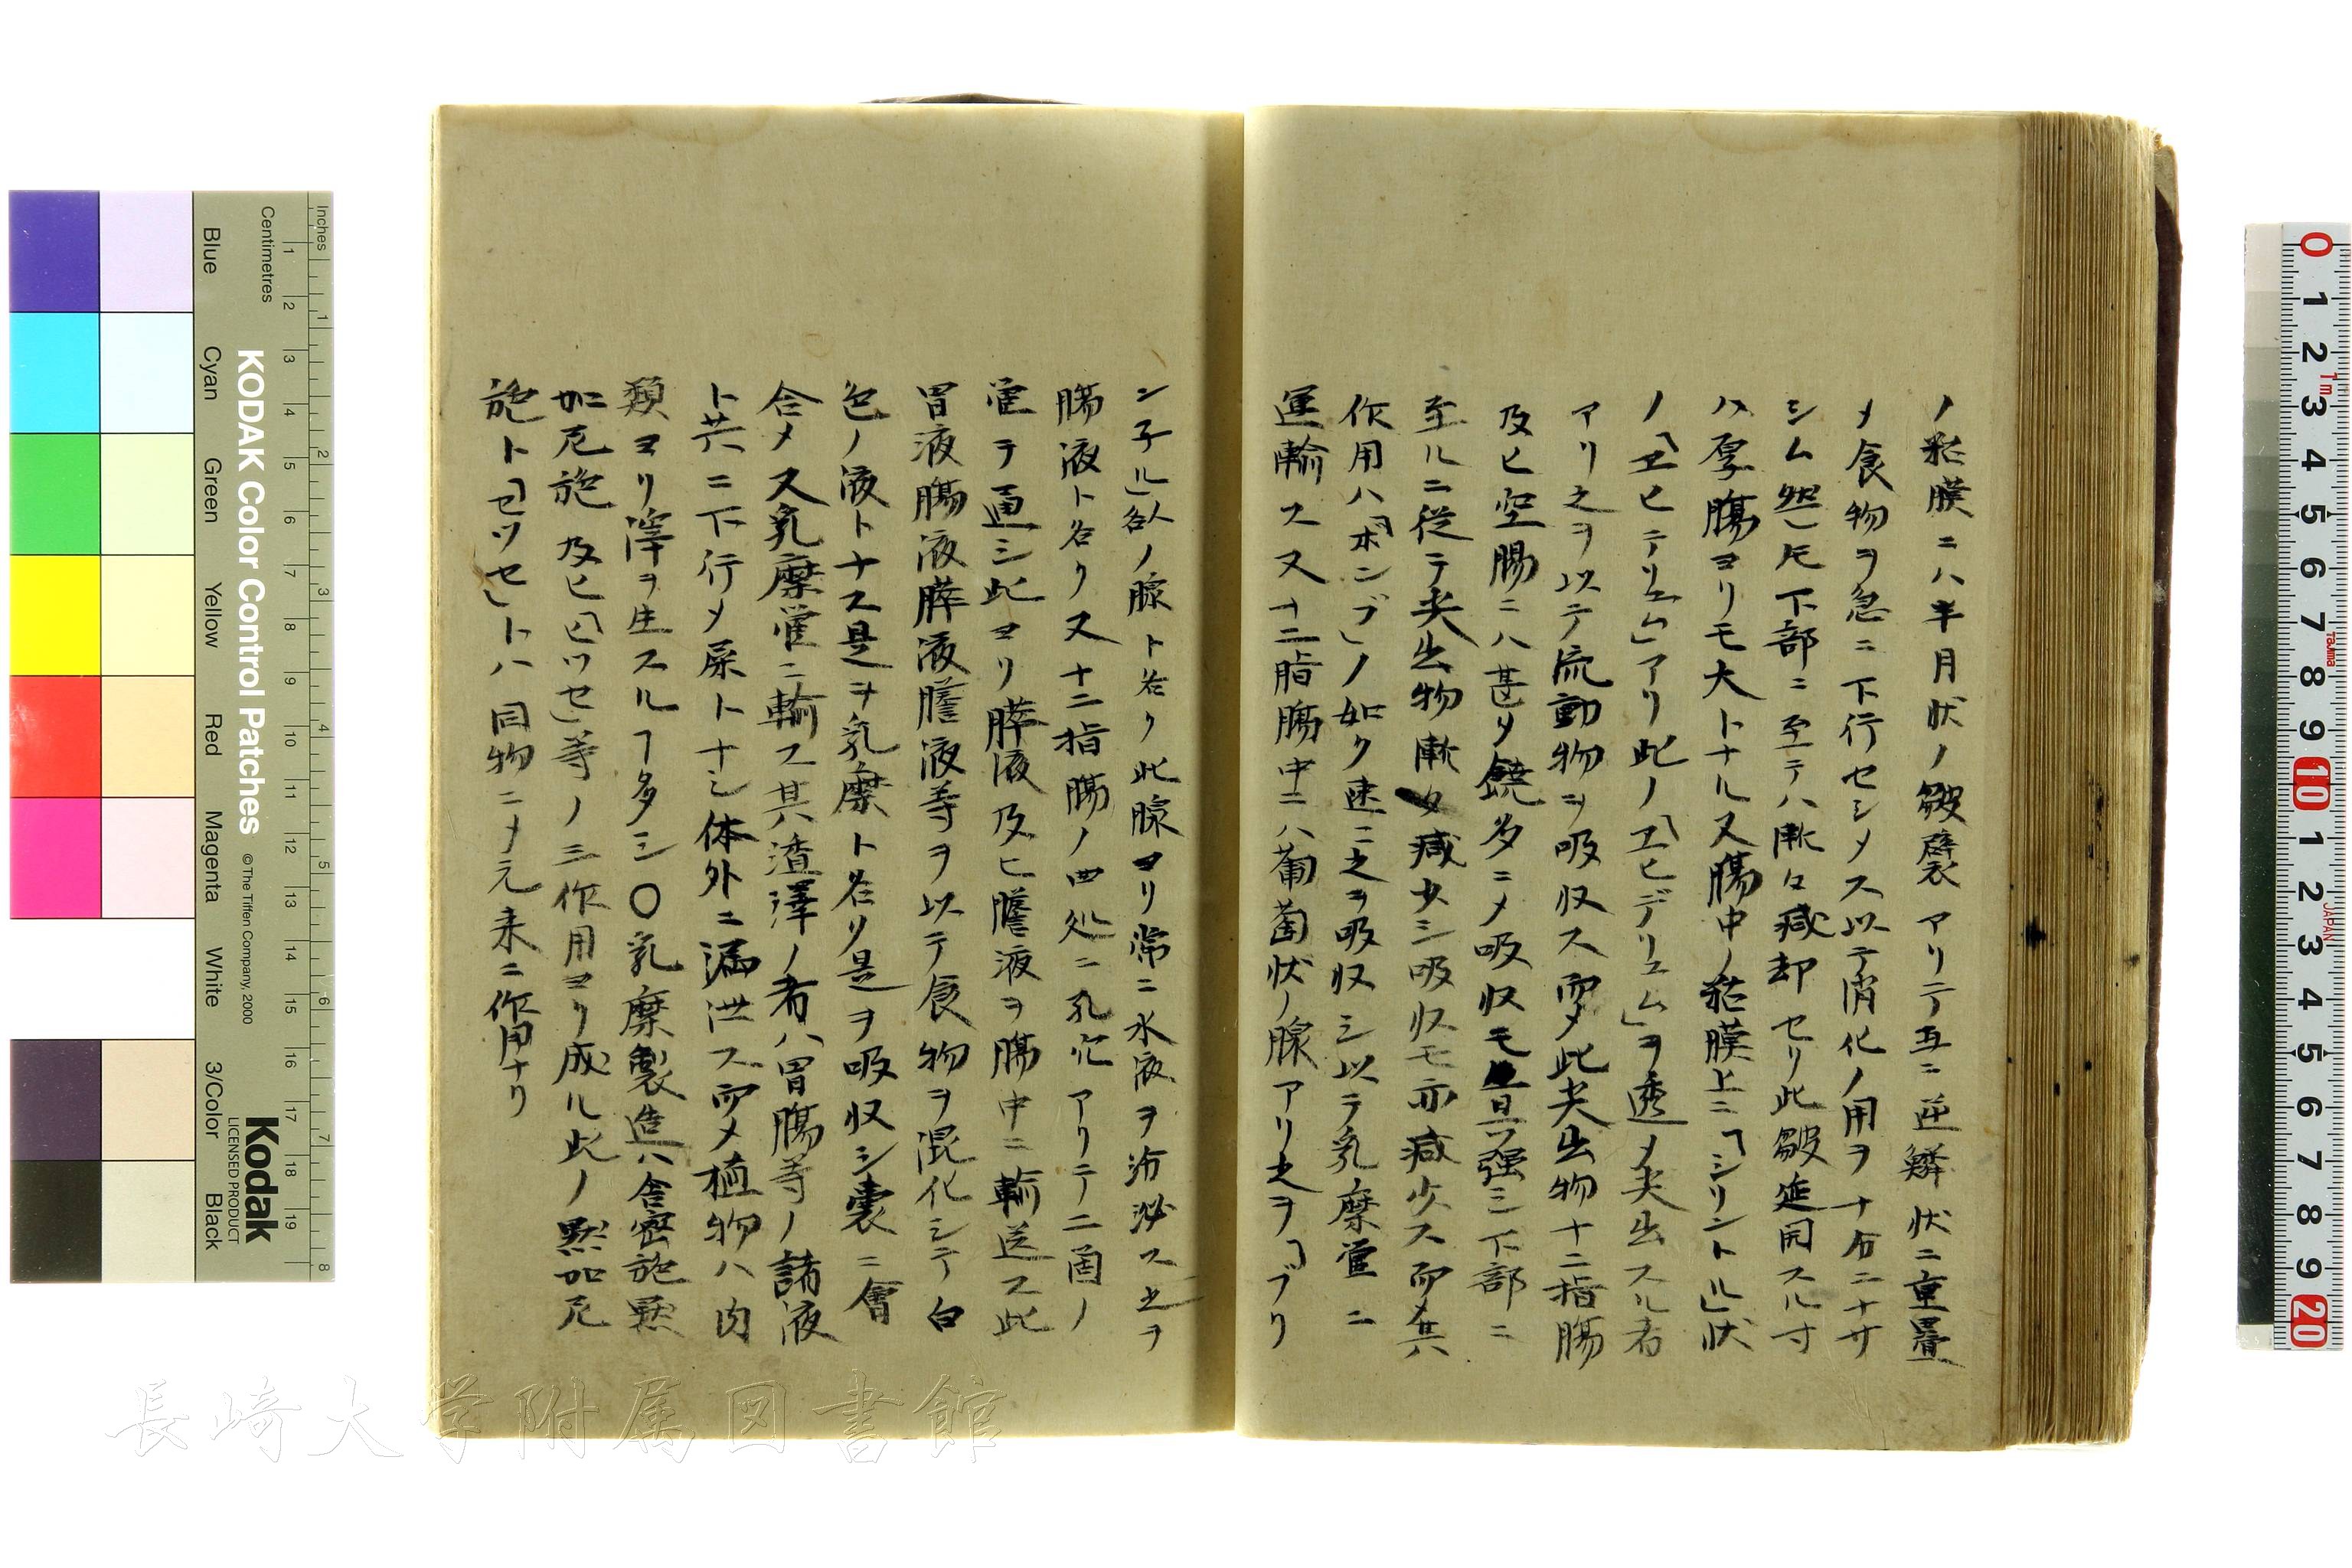 ノ粘膜ニハ半月状ノ皺襞アリテ互ニ逆鱗状ニ重畳
メ食物ヲ急ニ下行セシメス以テ消化ノ用ヲ十分ニナサ
シム然ㇾ𪜈下部ニ至テハ漸々減却セリ此皺延開スル寸
ハ厚腸ヨリモ大トナル又腸中ノ粘膜上ニ「シリントル」状
ノ「ヱヒテリユム」アリ此ノ「ヱヒデリユム」ヲ透メ尖出スル者
アリ之ヲ以テ流動物ヲ吸収ス而メ此尖出物十二指腸
及ヒ空腸ニハ甚タ饒多ニメ吸収モ且强シ下部ニ
至ルニ従テ尖出物漸々減少シ吸収モ亦減少ス而メ其
作用ハ「ホンブ」ノ如ク速ニ之ヲ吸収シ以テ乳糜管ニ
運輸ス又十二脂腸中ニハ葡萄状ノ腺アリ之ヲ「ブリ
ン子ル」ノ腺ト名ク此腺ヨリ常ニ水液ヲ泌ス之ヲ
腸液ト名ク又十二指腸ノ四処ニ乳穴アリテ二箇ノ
管テ通シ此ヨリ膵液及ヒ膽液ヲ腸中ニ輸送ス此
胃液腸液膵液膽液等ヲ以テ食物ヲ混化シテ白
色ノ液トナス是ヲ乳糜ト名ク是ヲ吸収シ嚢ニ會
合メ乳糜管ニ輸ス其渣滓ノ者ハ胃腸等ノ諸液
ト共ニ下行メ屎トナシ体外ニ漏泄ス而メ植物ハ肉
類ヨリ滓ヲ生スルヿ多シ〇乳糜製造ハ舎密施黙
加尼施及ヒ「ヒツセ」等ノ三作用ヨリ成ル此ノ黙加尼
施ト「ヒツセ」トハ同物ニメ元来ニ作用ナリ
KODAK Color Control Patches
© The Tiffen Company, 2000
Kodak
LICENSED PRODUCT
Inches
Centimetres
Blue
Cyan
Green
Yellow
Red
Magenta
White
3/Color
Black
長崎大学附属図書館